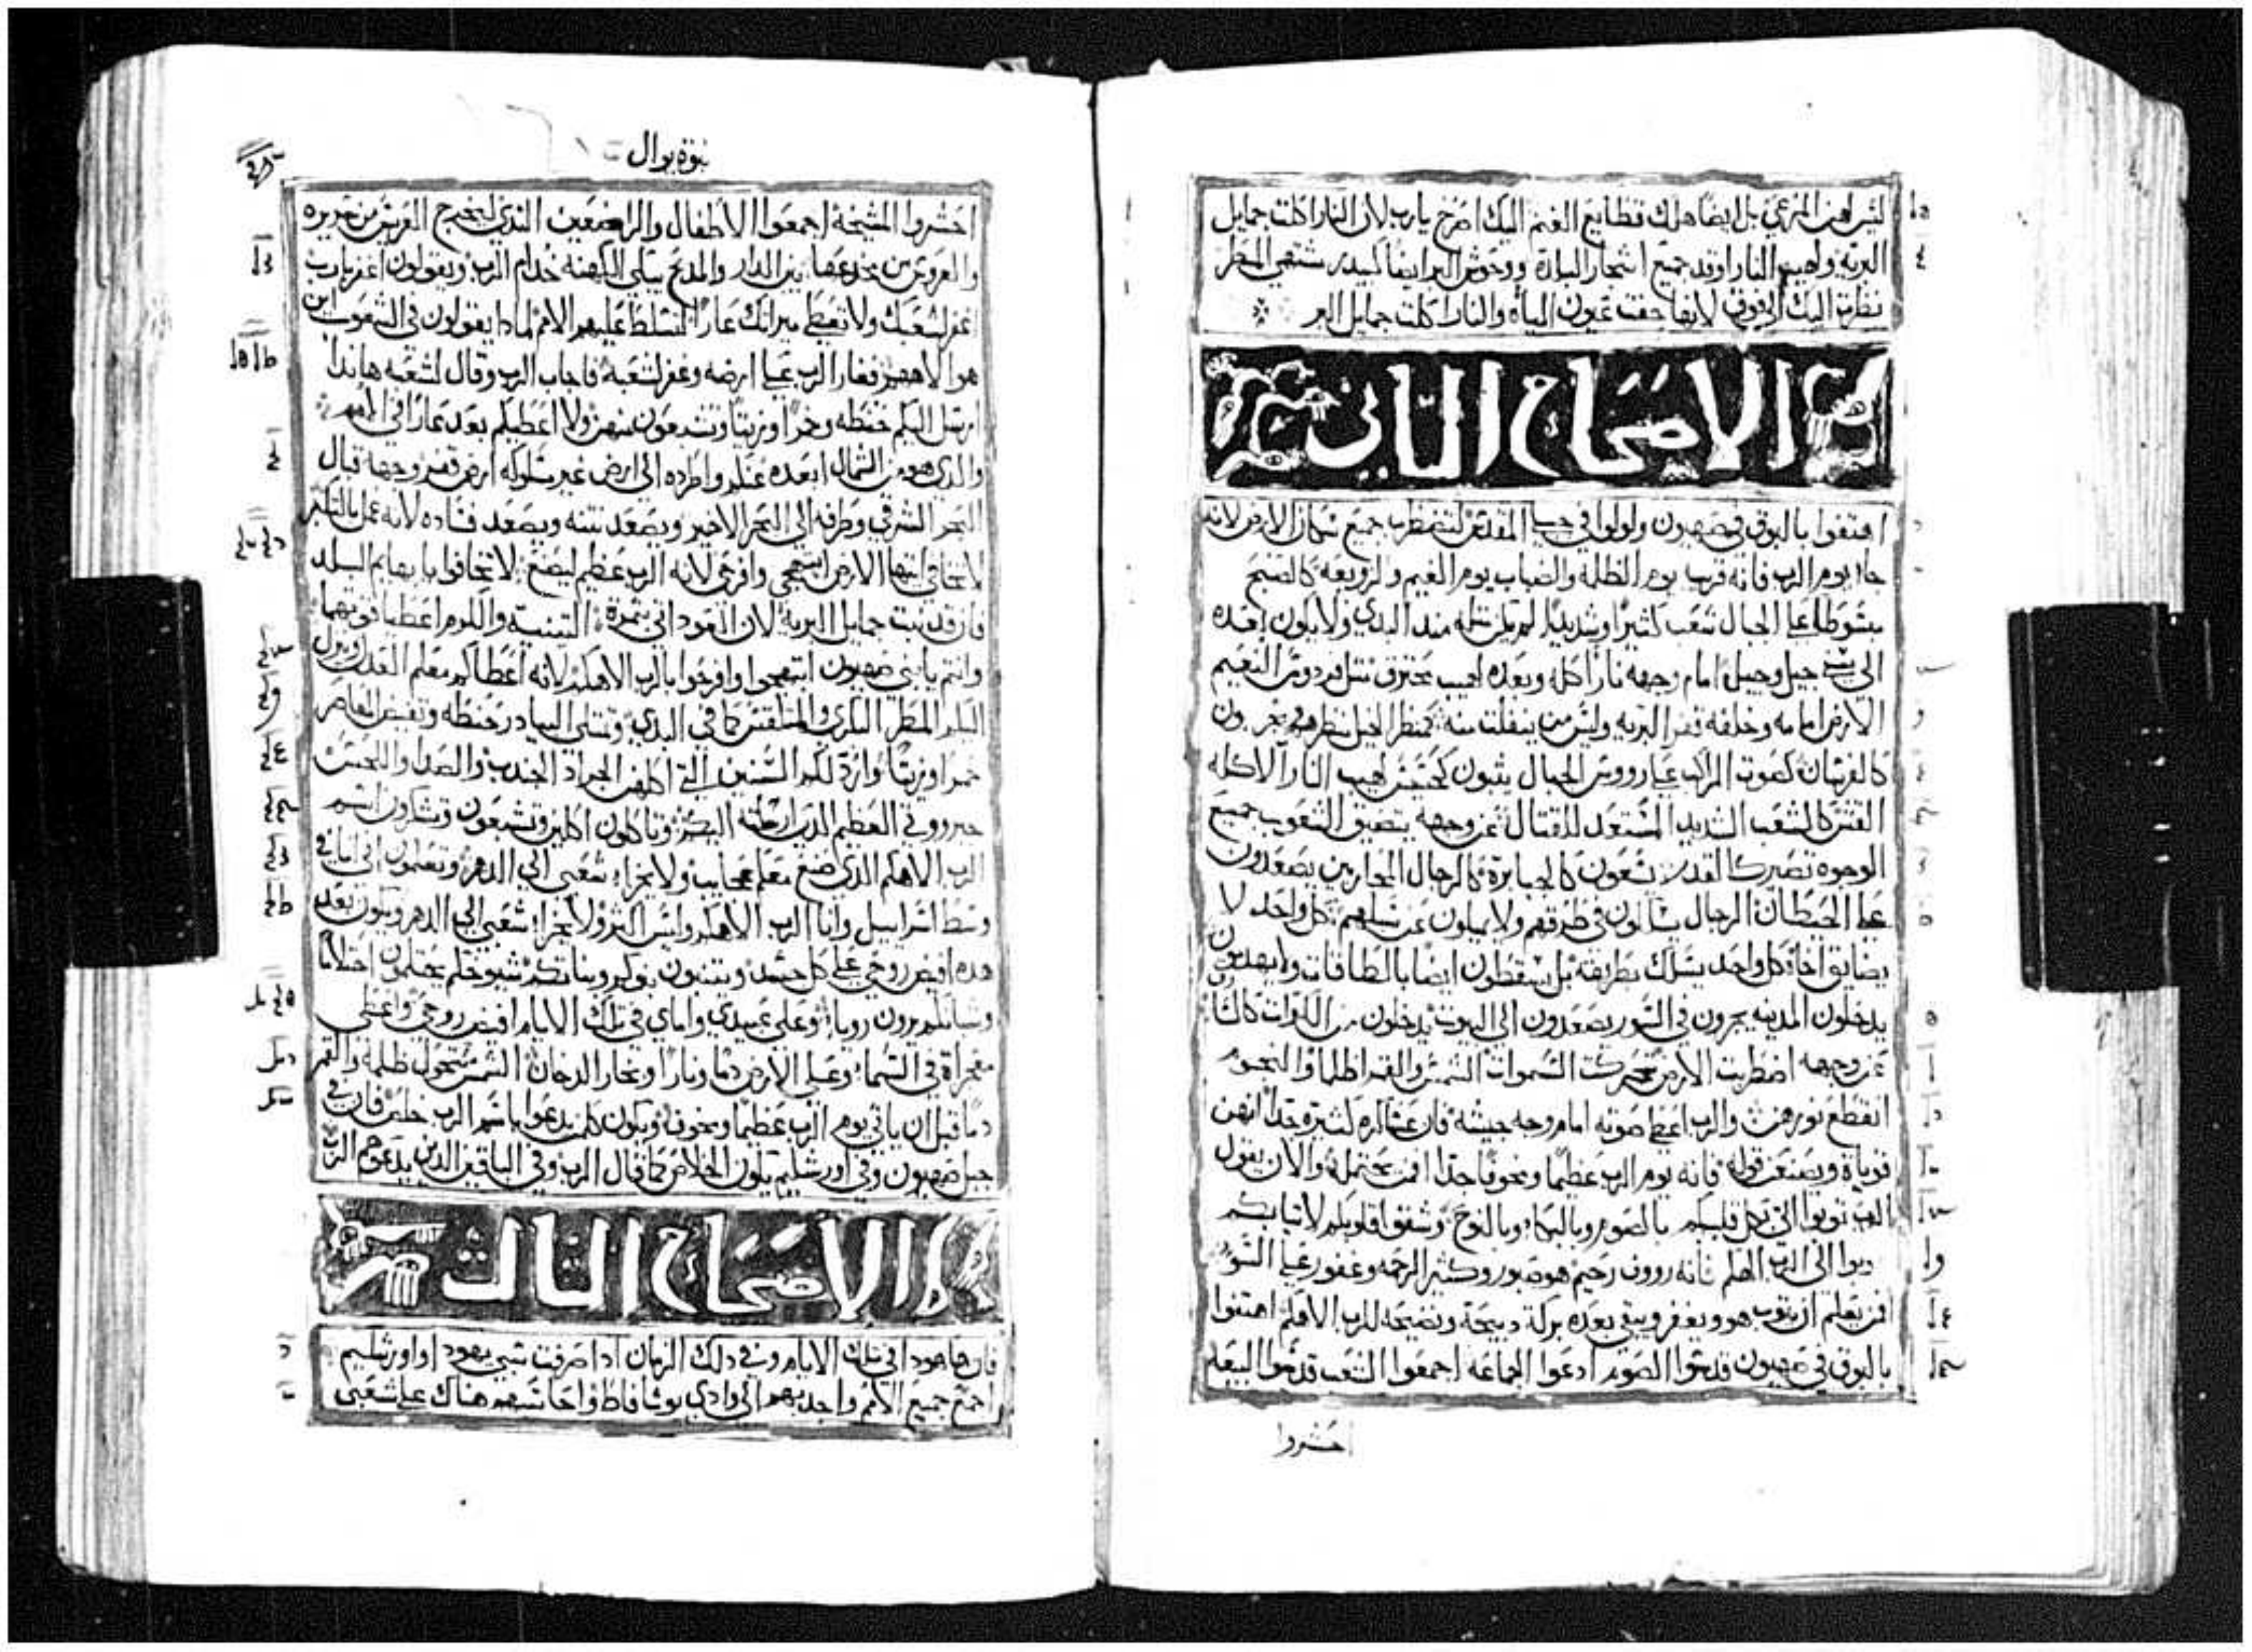 ليس لهن المرعى بل ايضا هلك قطايع الغنم اليك اصرخ يارب لان النار اكلت جمايل
البريه ولهيب النار اوقد جميع اشجار البلاد ووحوش البر ايضا كبيدر مشتهي المطر
نظرت اليك الي فوق لانها جفت عيون المياه والنار اكلت جمايل البر
الاصحاح الثاني
اهتفوا بالبوق في صهيون ولولوا في جبل المقدس لتضطرب جميع سكان الارض لانه
جاء يوم الرب فانه قريب يوم الظلمه والضباب يوم الغيم والزوبعه كالصبح
مبسوطا علي الجبال شعب كثيرا وشديدا لم يكن مثله منذ البدي ولا يكون بعده
الي سنين جيل وجيل امام وجهه نارا اكله وبعده لهيب محترق مثل فردوس النعيم
الارض امامه وخلفه قفر البريه وليس من ينفلت منه كمنظر الخيل منظرهم يجرون
كالفرسان كصوت المراكب علي رووس الجبال يثبون كحسيس لهيب النار الاكله
القش كالشعب الشديد المستعد للقتال عن وجهه يتضيق الشعوب جميع
الوجوه تصير كالقدر يسعون كالجبابرة كالرجال المحاربين يصعدون
علي الحيطان الرجال يسالون في طرقهم ولا يميلون عن سبلهم كل واحد لا
يضايق اخاه كل واحد يسلك بطريقه بل يسقطون ايضا بالطاقات ولا يهدمون
يدخلون المدينه يجرون في السور يصعدون الي البيوت يدخلون من الكوات كالسا
عن وجهه اضطربت الارض تحركت السموات الشمس والقمر اظلما والنجوم
انقطع نورهن والرب اعطي صوته امام وجه جيشه فان عساكره كثيرة جدا انهن
قوياة ويصنعن قوله فانه يوم الرب عظيما ومخوفا جدا فمن يحتمله والان يقول
الرب توبوا الي بكل قلبكم بالصوم وبالبكاء وبالنوح وشقوا قلوبكم لا ثيابكم
وتوبوا الي الرب الهكم فانه رووف رحيم هو صبور وكثير الرحمه وغفور علي السو
فمن يعلم ان يتوب هو ويغفر ويبقي بعده بركة دبيحة ونضيحه للرب الاهكم اهتفوا
بالبوق في صهيون قدسوا الصوم ادعوا الجماعه اجمعوا الشعب قدسوا البيعه
احشروا
نبوة يوال
احشروا المشيخة اجمعوا الاطفال والراضعين الثدي ليخرج العريس من سريره
والعروس من مخدعها بين الدار والمدبح يبكي الكهنه خدام الرب ويقولون اغفر يارب
اغفر لشعبك ولا تعطي ميراثك عارا لتتسلط عليهم الامم لمادا يقولون في الشعوب اين
هو الاههم فغار الرب علي ارضه وغفر لشعبه فاجاب الرب وقال لشعبه هاندا
ارسل اليكم حنطه وخمرا وزيتا وتشبعون منهن ولا اعطيكم بعد عارا في الامم
والدي هو من الشمال ابعده عنكم واطرده الي ارض غير مسلوكه ارض قفر وجهه قبال
البحر الشرقي وطرفه الي البحر الاخير ويصعد نتنه ويصعد فساده لانه عمل بالتكبر
لا تخافي ايتها الارض ابتهجي وافرحي لانه الرب عظم ليصنع لا تخافوا يا بهايم البلد
فان قد نبت جمايل البرية لان العود اتي بثمره التينه والكروم اعطيا قوتهما
وانتم يا بني صهيون ابتهجوا وافرحوا بالرب الاهكم لانه اعطاكم معلم العدل وينزل
اليكم المطر البكري والمتلقس كما في البدي وتمتلي البيادر حنطه وتفيض المعاصر
خمرا وزيتا وارد لكم السنين التي اكلهن الجراد الجندب والصدا والدبيب
جبروتي العظيم الذي ارسلته اليكم وتاكلون اكلين وتشبعون وتشكرون اسم
الرب الاهكم الذي صنع معكم عجايب ولا يخزا شعبي الي الدهر وتعلمون اني انا في
وسط اسراييل وانا الرب الاهكم وليس اكثر ولا يخزا شعبي الي الدهر ويكون بعد
هده افيض روحي علي كل جسد ويتنبون بنوكم وبناتكم شيوخكم يحتلمون احتلاما
وشبانكم يرون رويا وعلي عبيدي واماي في تلك الايام افيض روحي واعطي
معجزاة في السماء وعلي الارض دما ونارا وبخار الدخان الشمس تتحول ظلمه والقمر
دما قبل ان ياتي يوم الرب عظيما ومخوفا ويكون كلمن يدعوا باسم الرب خلص فان في
جبل صهيون وفي اورشليم يكون الخلاص كما قال الرب وفي الباقين الدين يدعوهم الرب
الاصحاح الثالث
فان هاهودا في تلك الايام وفي دلك الزمان ادا صرفت سبي يهودا واورشليم
اجمع جميع الامم واحدرهم الي وادي يوشافاط واحاسبهم هناك علي شعبي